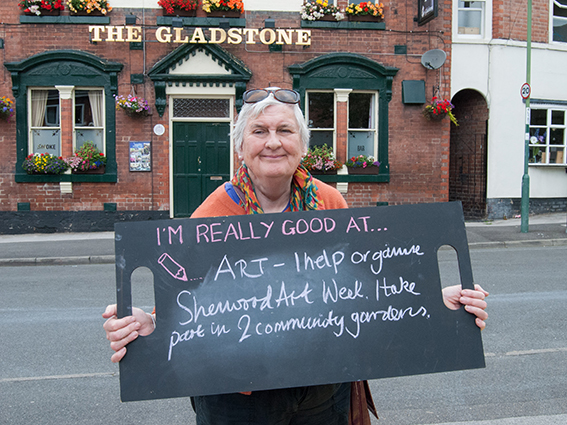 THE GLADSTONE
20
I'M REALLY GOOD AT...
... ART – I help organise
Sherwood Art Week. I take
part in 2 community gardens.